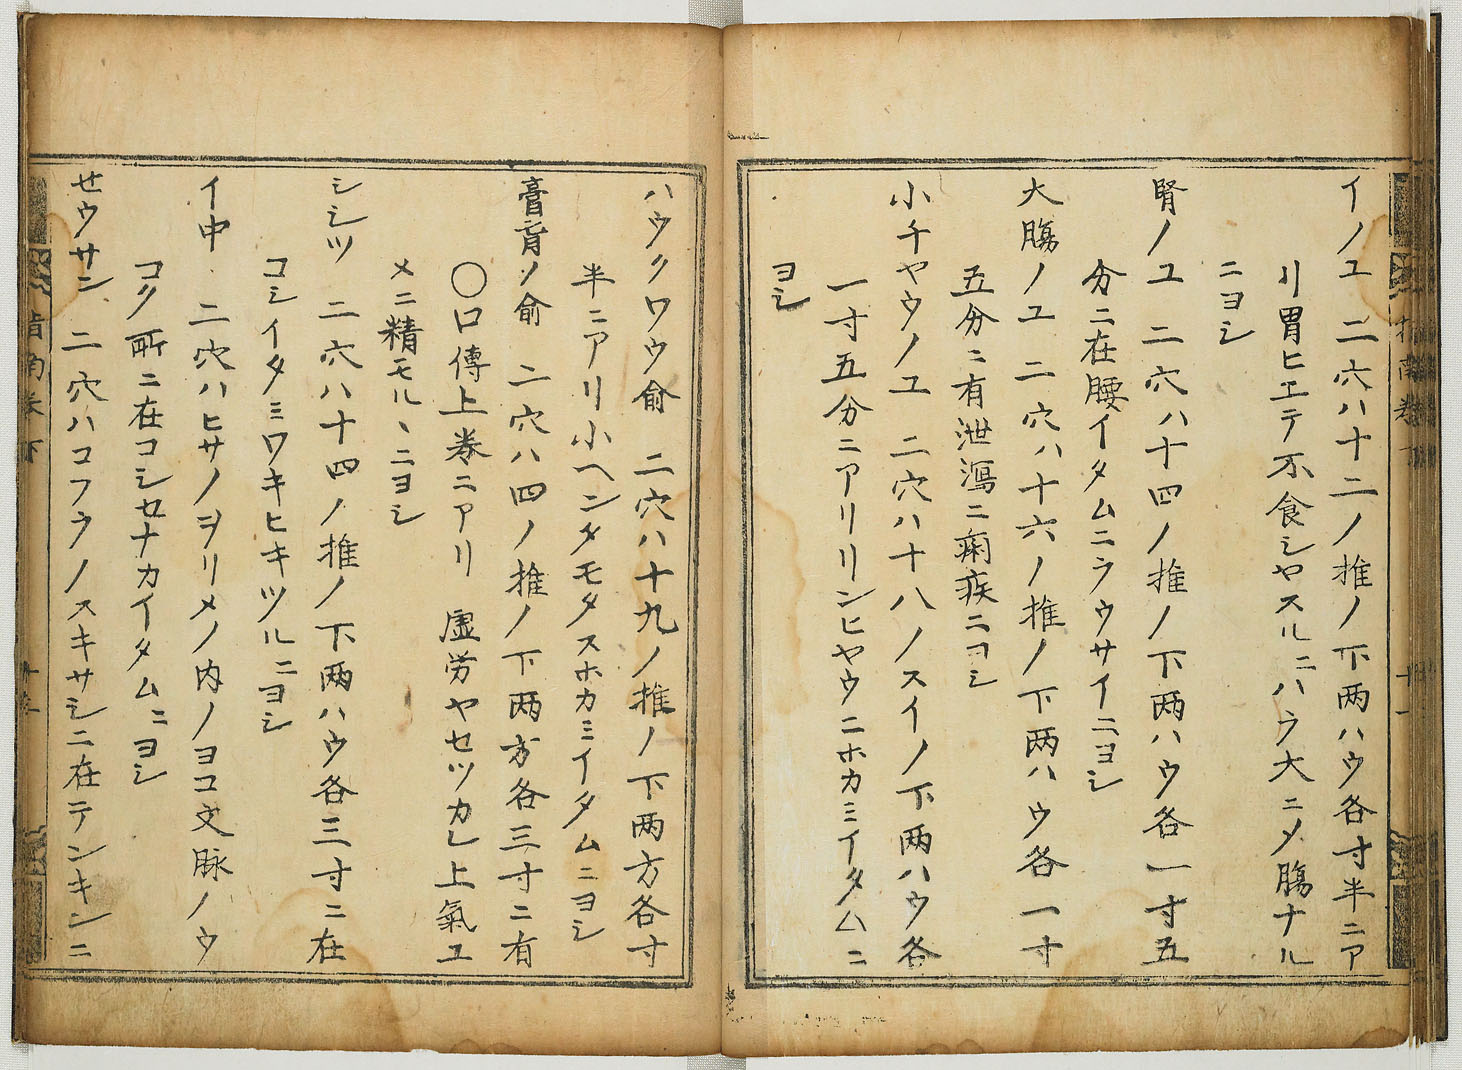 イノユ 二穴ハ十二ノ推ノ下两ハウ各寸半ニア
リ胃ヒエテ不食シヤスルニハラ大ニメ膓ナル
ニヨシ
腎ノユ 二穴ハ十四ノ推ノ下两ハウ各一寸五
分ニ在腰イタムニラウサイニヨシ
大膓ノユ 二穴ハ十六ノ推ノ下两ハウ各一寸
五分ニ有泄瀉ニ痢疾ニヨシ
小チヤウノユ 二穴ハ十八ノスイノ下两ハウ各
一寸五分ニアリリンヒヤウニホカミイタムニ
ヨシ
ハウクワウ俞 二穴ハ十九ノ推ノ下两方各寸
半ニアリ小ヘンタモタスホカミイタムニヨシ
膏肓ソ俞 二穴ハ四ノ推ノ下两方各三寸ニ有
〇口傳上巻ニアリ 虚労ヤセツカレ上氣エ
メニ精モルヽニヨシ
シシツ 二穴ハ十四ノ推ノ下两ハウ各三寸ニ在
コシイタミワキヒキツルニヨシ
イ中 二穴ハヒサノヲリメノ内ノヨコ文脉ノウ
コク所ニ在コシセナカイタムニヨシ
せウサン 二穴ハコフラノスキサシニ在テンキンニ
指南巻下